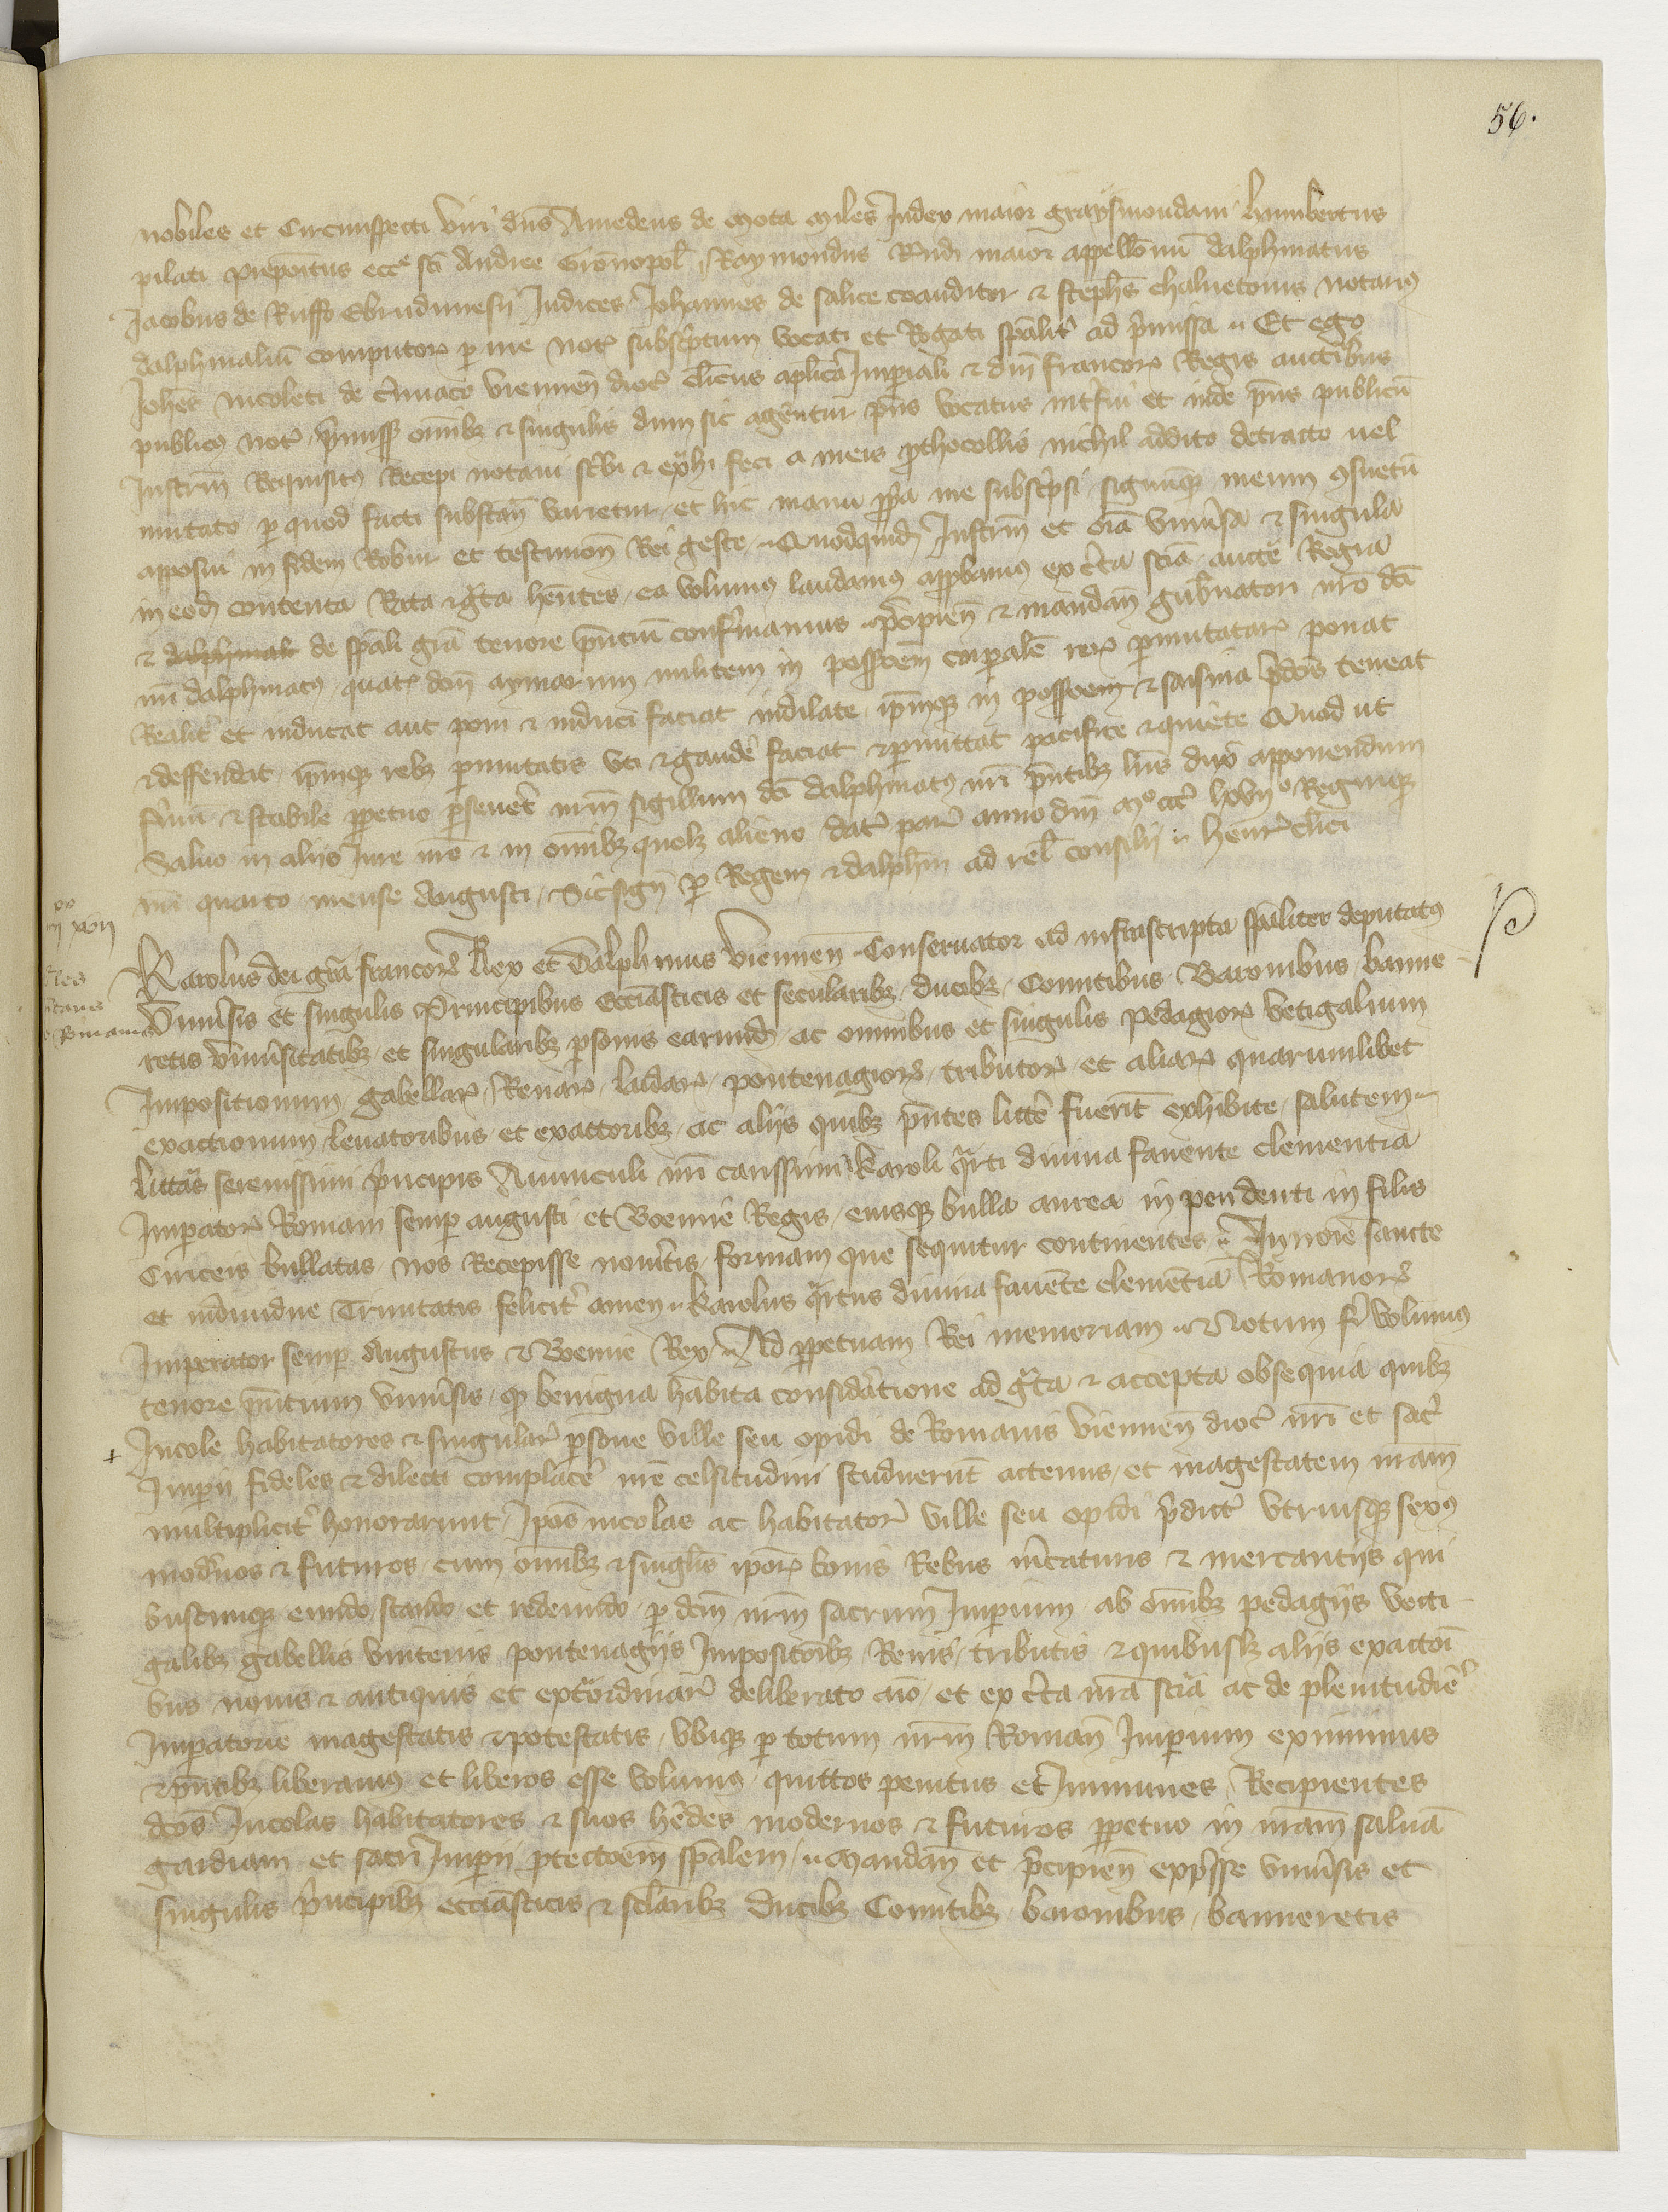 56.
nobiles et Circunspecti viri dn̄s Amedeus de Mota miles Judex maior graysiuoudani Humbertus
pilati prepoītus ecc̄e sc̄i Andree Gronopol̄ Raymondus Rudi maior appellōnū dalphinatus
Jacobus de Ruffo Ebrudunesȳ Judices Johannes de salice coauditor & steph̄s chaluetonis notariꝰ
dalphinaliū computoꝝ p me not subsc̄ptum vocati et Rogati spālit ad p̄missa Et ego
Joh̄es nicoleti de c̄uiaco viennen̄ dioc̄ cl̄icus apl̄ica Imperiali & dn̄i francoꝝ Regis auctibus
publicꝰ not p̄miss omībꝫ & singulis dum sic agerentur p̄ns vocatus int̄fui et inde p̄ns publicū
Instrm̄ Requisitꝰ Recepi notaui sc̄bi & ex̄hi feci a meis p̄thocollis nichil addito detracto uel
mutato p quod facti substan̄ varietur et hic manu pp̄a me subsc̄psi signūqꝫ meum ꝯsuetū
apposui in fidem Robur et testimon̄ Rei geste Quodquid Instrm̄ et oīa vniūsa & singula
in eod̄ contenta Rata & gͣta hēntes ea volumꝰ laudamꝰ app̄bamꝰ ex c̄ta sciā aucte Regia
& dalphinali de sp̄ali grā tenore p̄nciū conf̄mamus p̄cipien̄ & mandan̄ gub̄natori nr̄o dc̄i
nr̄i dalphinatꝰ quatꝫ dcm̄ aymarum militem in possoēm corporalē reꝝ p̄mutataꝝ ponat
Realit et inducat aut poni & induci faciat indilate ip̄mqꝫ in possoēm & saisina p̄dc̄is teneat
& deffendat ip̄mqꝫ rebꝫ p̄mutatis vti & gaudē faciat & p̄mittat pacifice & quiete Quod ut
f̄mū & stabile ppetuo p̄seueret nr̄m sigillum dc̄i dalphinatꝰ nr̄i p̄ntibꝫ lr̄is duxi apponendum
Saluo in aliis Jure nr̄o & in omībꝫ quolꝫ alieno dat par̄ anno dn̄i Mº ccc̄ lxvijº Regnuqꝫ
nr̄i quarto mense Augusti Sic sign̄ p Regem & dalph̄m ad rel̄ consilij Henr̄ cl̄ici
Karolus dei grā francoꝝ Rex et Dalphinus viennen̄ Conseruator ad infrascripta spāliter deputatꝰ
Vniūsis et singulis Principibus Ecc̄iasticis et secularibꝫ ducibꝫ Comitibus Baronibus banne
retis vniūsitatibꝫ et singularibꝫ p̄sonis earumd ac omnibus et singulis pedagioꝝ vetigalium
Impositionum gabellaꝝ Renaꝝ ladaꝝ pontenagioꝝ tributoꝝ et aliaꝝ quarumlibet
exactionum leuatoribus et exactoribꝫ ac aliis quibꝫ p̄ntes littē fuerīt exhibite salutem
Litt̄as serenissimi p̄ncipis Auunculi nr̄i carissimi Karoli qͣrti diuina fauente clementia
Imperatoꝝ Roman̄ semp augusti et Boemie Regis eiusqꝫ bulla aurea in pendenti in filis
Ciriceis bullatas nos Recepisse nou̇tis formam que sequitur continentes In noīe sancte
et indiuidue Trinitatis felicit amen Karolus qͣrtus diuina fauēte clemētia Romanoꝝ
Imperator semp Augustus & Boemie Rex Ad ppetuam Rei memoriam Notum fi volumꝰ
tenore p̄ntium vniūsis qꝫ benigna habita considātione ad gͣta & accepta obsequia quibꝫ
+ Incole habitatores & singular̄ p̄sone ville seu opidi de Romanis viennen̄ dioc̄ nr̄i et sac̄
Imperij fideles & dilecti complacē nr̄e celsitudini studuerūt actenus et magestatem nr̄am
multiplicit honorarunt Ip̄os incolas ac habitator̄ ville seu opidi p̄dict vtriusqꝫ sexꝰ
mod̄nos & futuros cum omībꝫ & singlis ip̄oꝝ bonis Rebus m̄caturis & mercantiis qui
buscunqꝫ eundo stando et redeundo p dcm̄ nr̄m sacrum Imperium ab omībꝫ pedagiis vecti
galibꝫ gabellis vintenis pontenagiis Impositoībꝫ Renis tributis & quibusꝫ aliis exactoī
bus nouis & antiquis et extͣordinar̄ deliberato aīo et ex c̄ta nr̄a sciā ac de plenitudīe
Imperatorie magestatis & potestatis vbiqꝫ p totum nr̄m Roman̄ Imperium eximimus
& p̄ntibꝫ liberamꝰ et liberos esse volumꝰ quittos penitus et Immunes Recipientes
dc̄os Incolas habitatores & suos h̄edes modernos & futuros ppetuo in nr̄am saluā
gardiam et sacri Imperij p̄tectoēm spālem Mandan̄ et p̄cipien̄ exp̄sse vniūsis et
singulis p̄ncipibꝫ ecc̄iasticis & sc̄laribꝫ Ducibꝫ Comitibꝫ baronibus banneretis